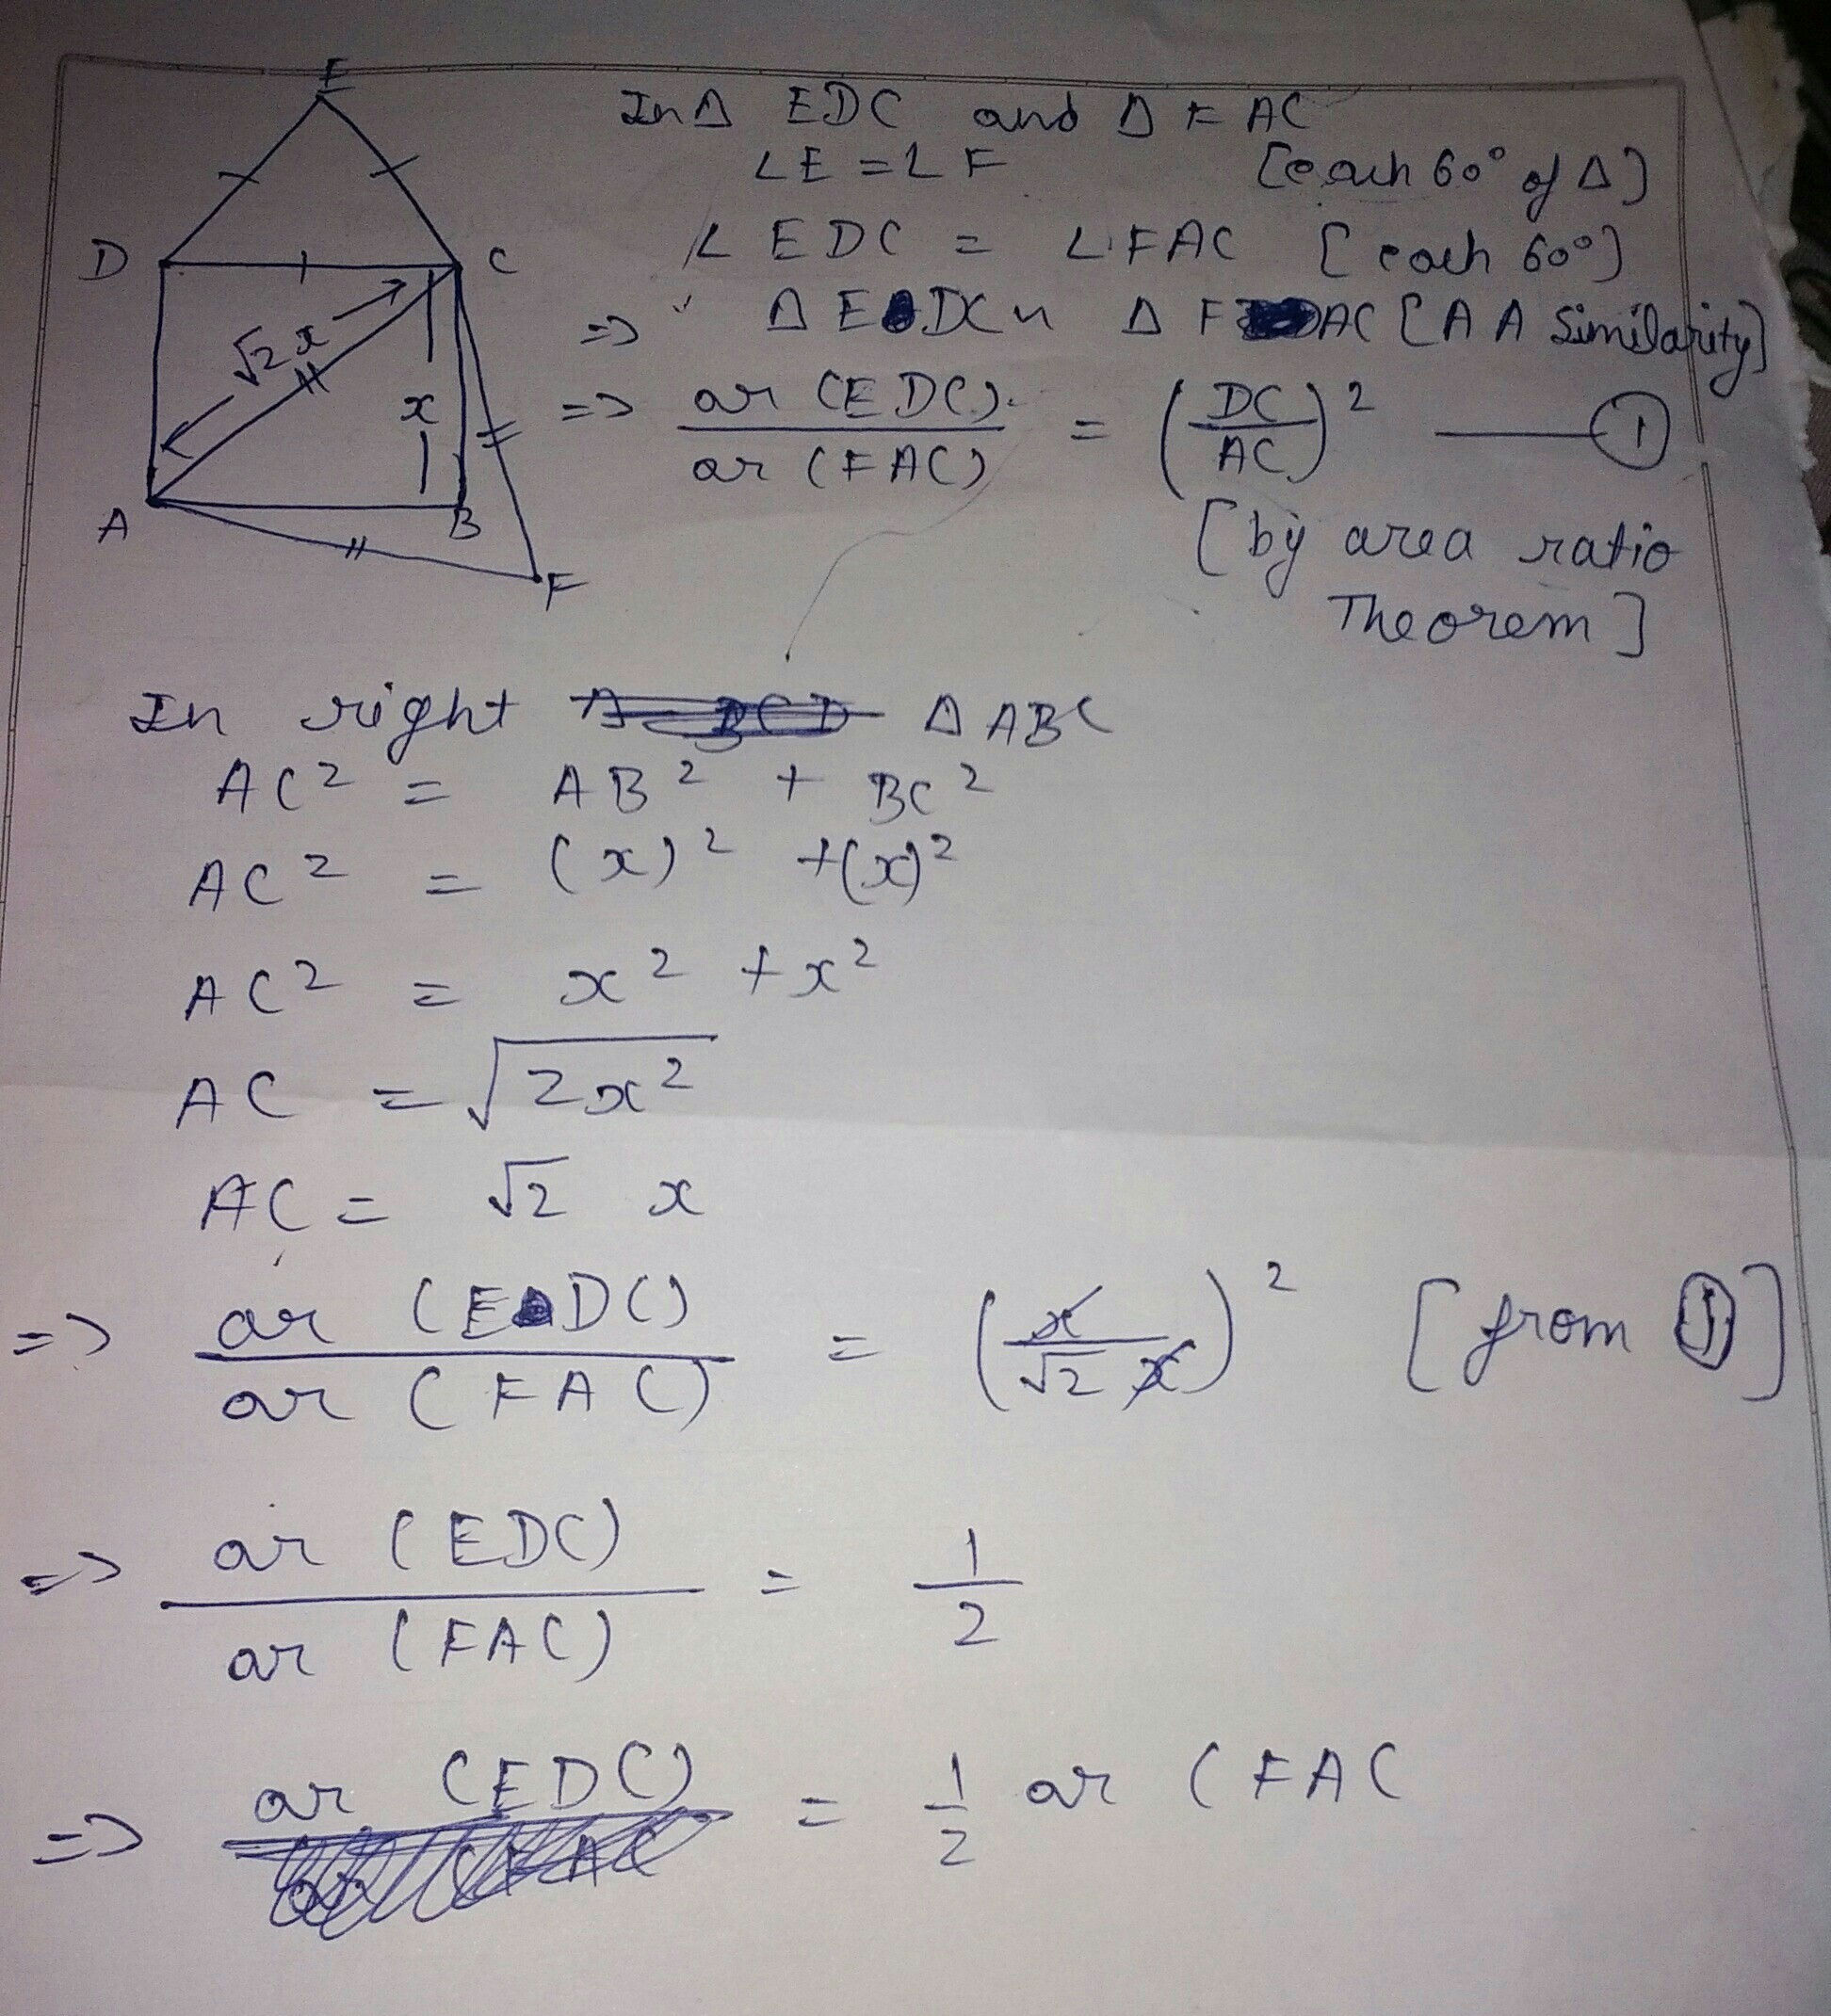 E
D
C
√2 x
x
A
B
F
In Δ EDC and Δ FAC
∠E = ∠F [each 60° of Δ]
∠EDC = ∠FAC [each 60°]
=> Δ EDC ~ Δ FAC [AA Similarity]
=> ar (EDC) / ar (FAC) = (DC/AC)² — ①
[by area ratio
Theorem]
In right Δ BCD Δ ABC
AC² = AB² + BC²
AC² = (x)² + (x)²
AC² = x² + x²
AC = √2x²
AC = √2 x
=> ar (EDC) / ar (FAC) = (x/√2 x)² [from ①]
=> ar (EDC) / ar (FAC) = 1/2
=> ar (EDC) = 1/2 ar (FAC